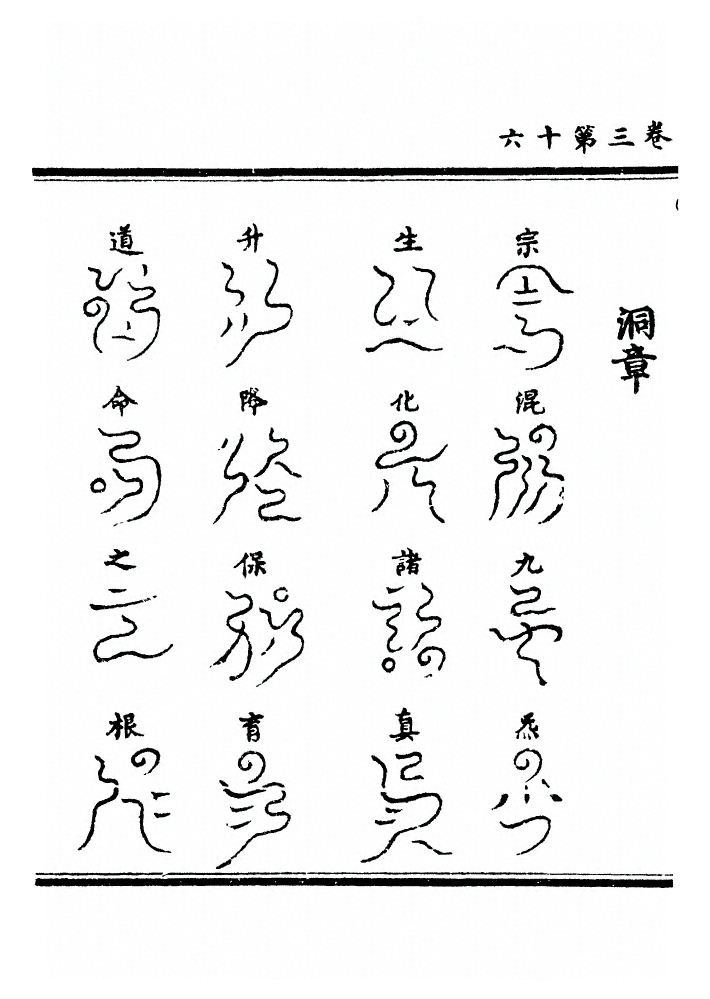 卷三第十六
洞章
宗混九炁
生化諸真
升降保育
道命之根